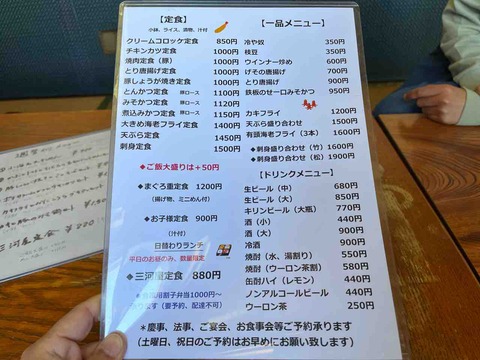 【定食】
小鉢、ライス、漬物、汁付
クリームコロッケ定食 850円
チキンカツ定食 1000円
焼肉定食（豚） 1000円
とり唐揚げ定食 1000円
豚しょうが焼き定食 1000円
とんかつ定食 豚ロース 1100円
みそかつ定食 豚ロース 1120円
煮込みかつ定食 豚ロース 1150円
大きめ海老フライ定食 1400円
天ぷら定食 1450円
刺身定食 1500円
◆ご飯大盛りは＋50円
◆まぐろ重定食 1200円
（揚げ物、ミニめん付）
◆お子様定食 900円
（汁付）
日替わりランチ
平日のお昼のみ、数量限定
◆三河屋定食 880円
割子弁当1000円～
ります（要予約、配達不可）
【一品メニュー】
冷や奴 350円
枝豆 350円
ウインナー炒め 600円
げその唐揚げ 700円
とり唐揚げ 900円
鉄板のせ一口みそかつ 950円
カキフライ 1200円
天ぷら盛り合わせ 1500円
有頭海老フライ（3本） 1600円
◆刺身盛り合わせ（竹）1600円
◆刺身盛り合わせ（松）1900円
【ドリンクメニュー】
生ビール（中） 680円
生ビール（大） 850円
キリンビール（大瓶） 770円
酒（小） 440円
酒（大） 900円
冷酒 900円
焼酎（水、湯割り） 550円
焼酎（ウーロン茶割） 580円
缶酎ハイ（レモン） 440円
ノンアルコールビール 440円
ウーロン茶 250円
＊慶事、法事、ご宴会、お食事会等ご予約承ります
（土曜日、祝日のご予約はお早めにお願い致します）
三河屋定食